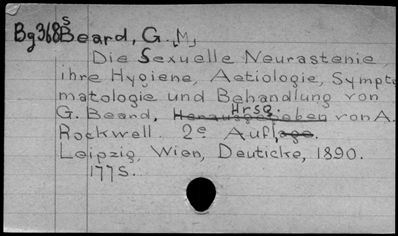 Bg368s Beard, G. [M]
Die Sexuelle Neurastenie,
ihre Hygiene, Aetiologie, Sympto
matologie und Behandlung von
G. Beard, Herausgegeben Hrsg. von A.
Rockwell. 2e Auflage.
Leipzig, Wien, Deuticke, 1890.
177S.